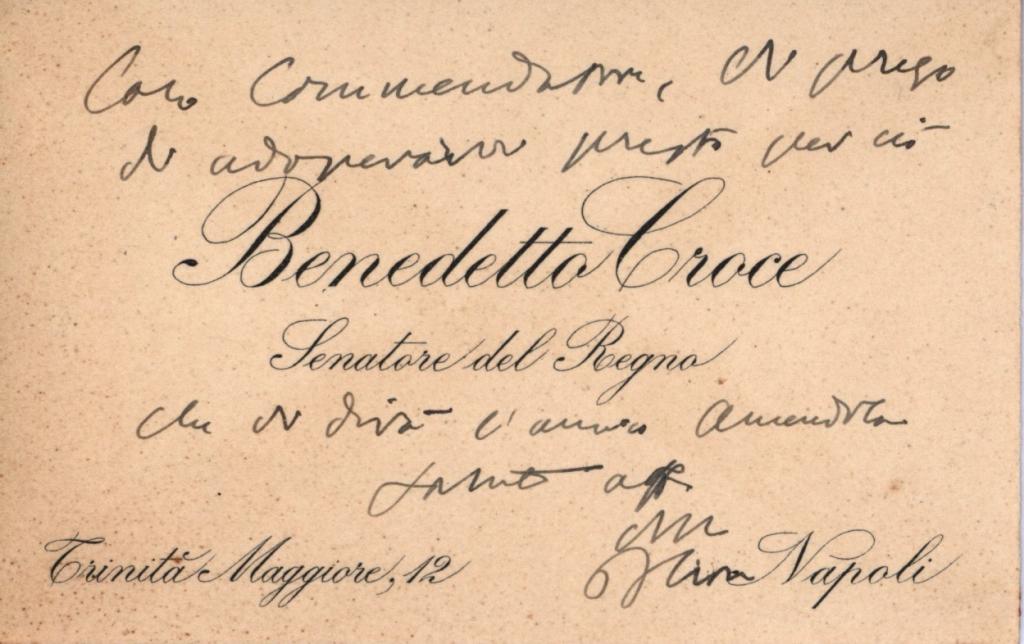 Caro Commendatore, vi prego
di adoperarvi presto per ciò
Benedetto Croce
Senatore del Regno
che vi dirà l'amico Amendola
Saluti aff.
Trinità Maggiore, 12
BCroce Napoli